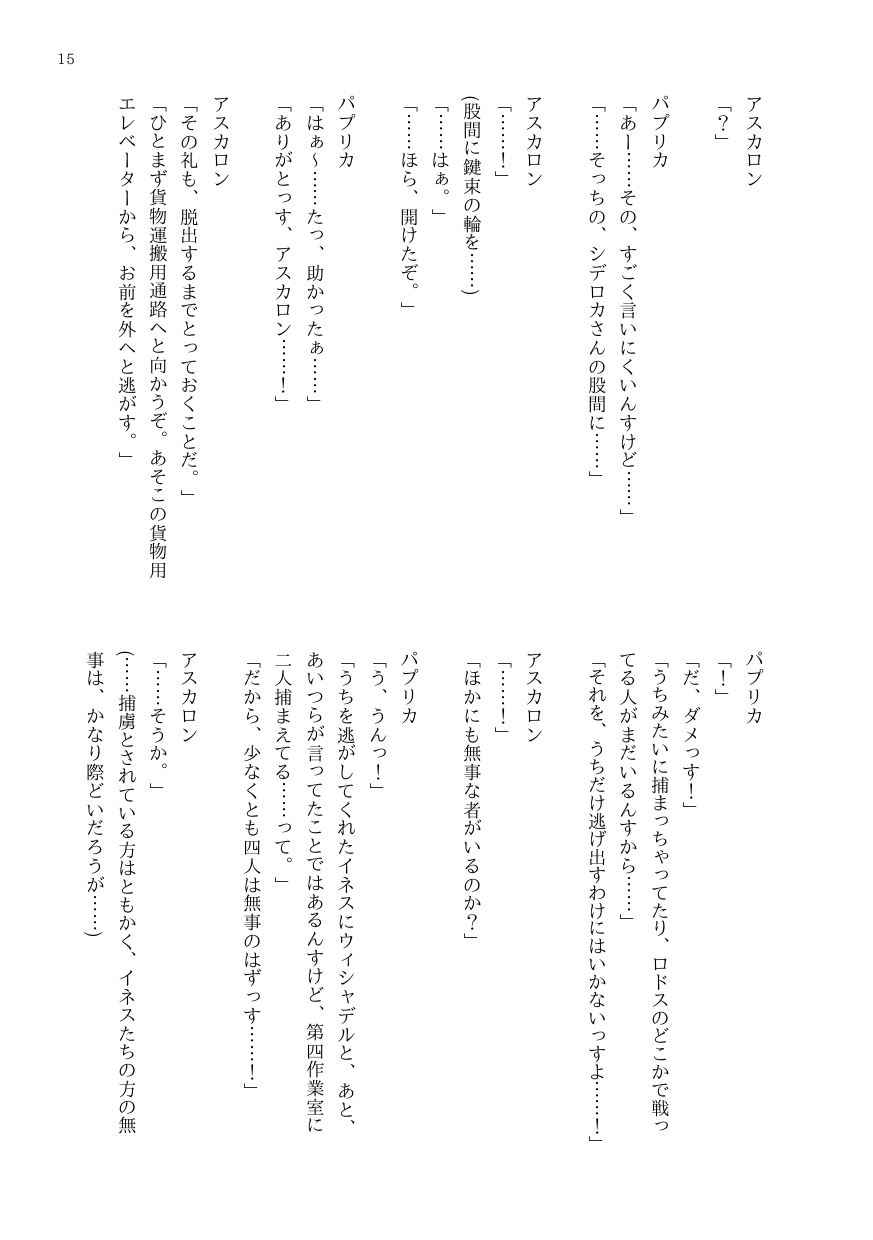 15
アスカロン
「？」
パプリカ
「あー……その、すごく言いにくいんすけど……」
「……そっちの、シデロカさんの股間に……」
アスカロン
「……！」
(股間に鍵束の輪を……)
「……はぁ。」
「……ほら、開けたぞ。」
パプリカ
「はぁ～……たっ、助かったぁ……」
「ありがとっす、アスカロン……！」
アスカロン
「その礼も、脱出するまでとっておくことだ。」
「ひとまず貨物運搬用通路へと向かうぞ。あそこの貨物用
エレベーターから、お前を外へと逃がす。」
パプリカ
「！」
「だ、ダメっす！」
「うちみたいに捕まっちゃってたり、ロドスのどこかで戦っ
てる人がまだいるんすから……」
「それを、うちだけ逃げ出すわけにはいかないっすよ……！」
アスカロン
「……！」
「ほかにも無事な者がいるのか？」
パプリカ
「う、うんっ！」
「うちを逃がしてくれたイネスにウィシャデルと、あと、
あいつらが言ってたことではあるんすけど、第四作業室に
二人捕まえてる……って。」
「だから、少なくとも四人は無事のはずっす……！」
アスカロン
「……そうか。」
(……捕虜とされている方はともかく、イネスたちの方の無
事は、かなり際どいだろうが……)